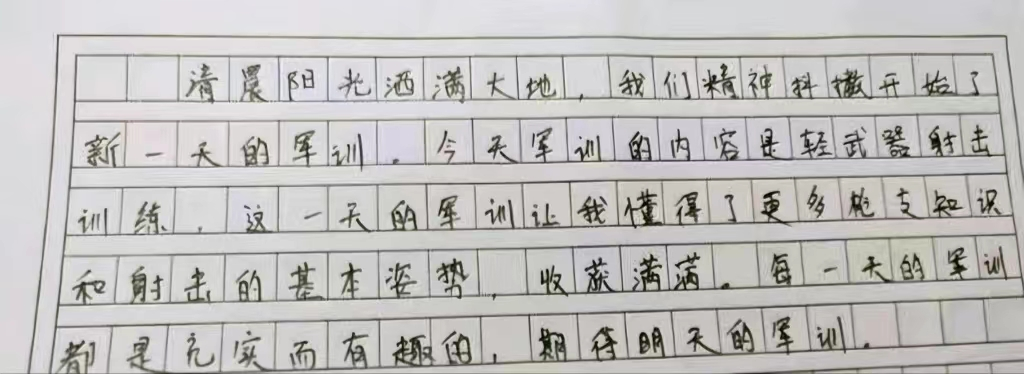 清晨阳光洒满大地，我们精神抖擞开始了
新一天的军训。今天军训的内容是轻武器射击
训练，这一天的军训让我懂得了更多枪支知识
和射击的基本姿势，收获满满。每一天的军训
都是充实而有趣的，期待明天的军训.